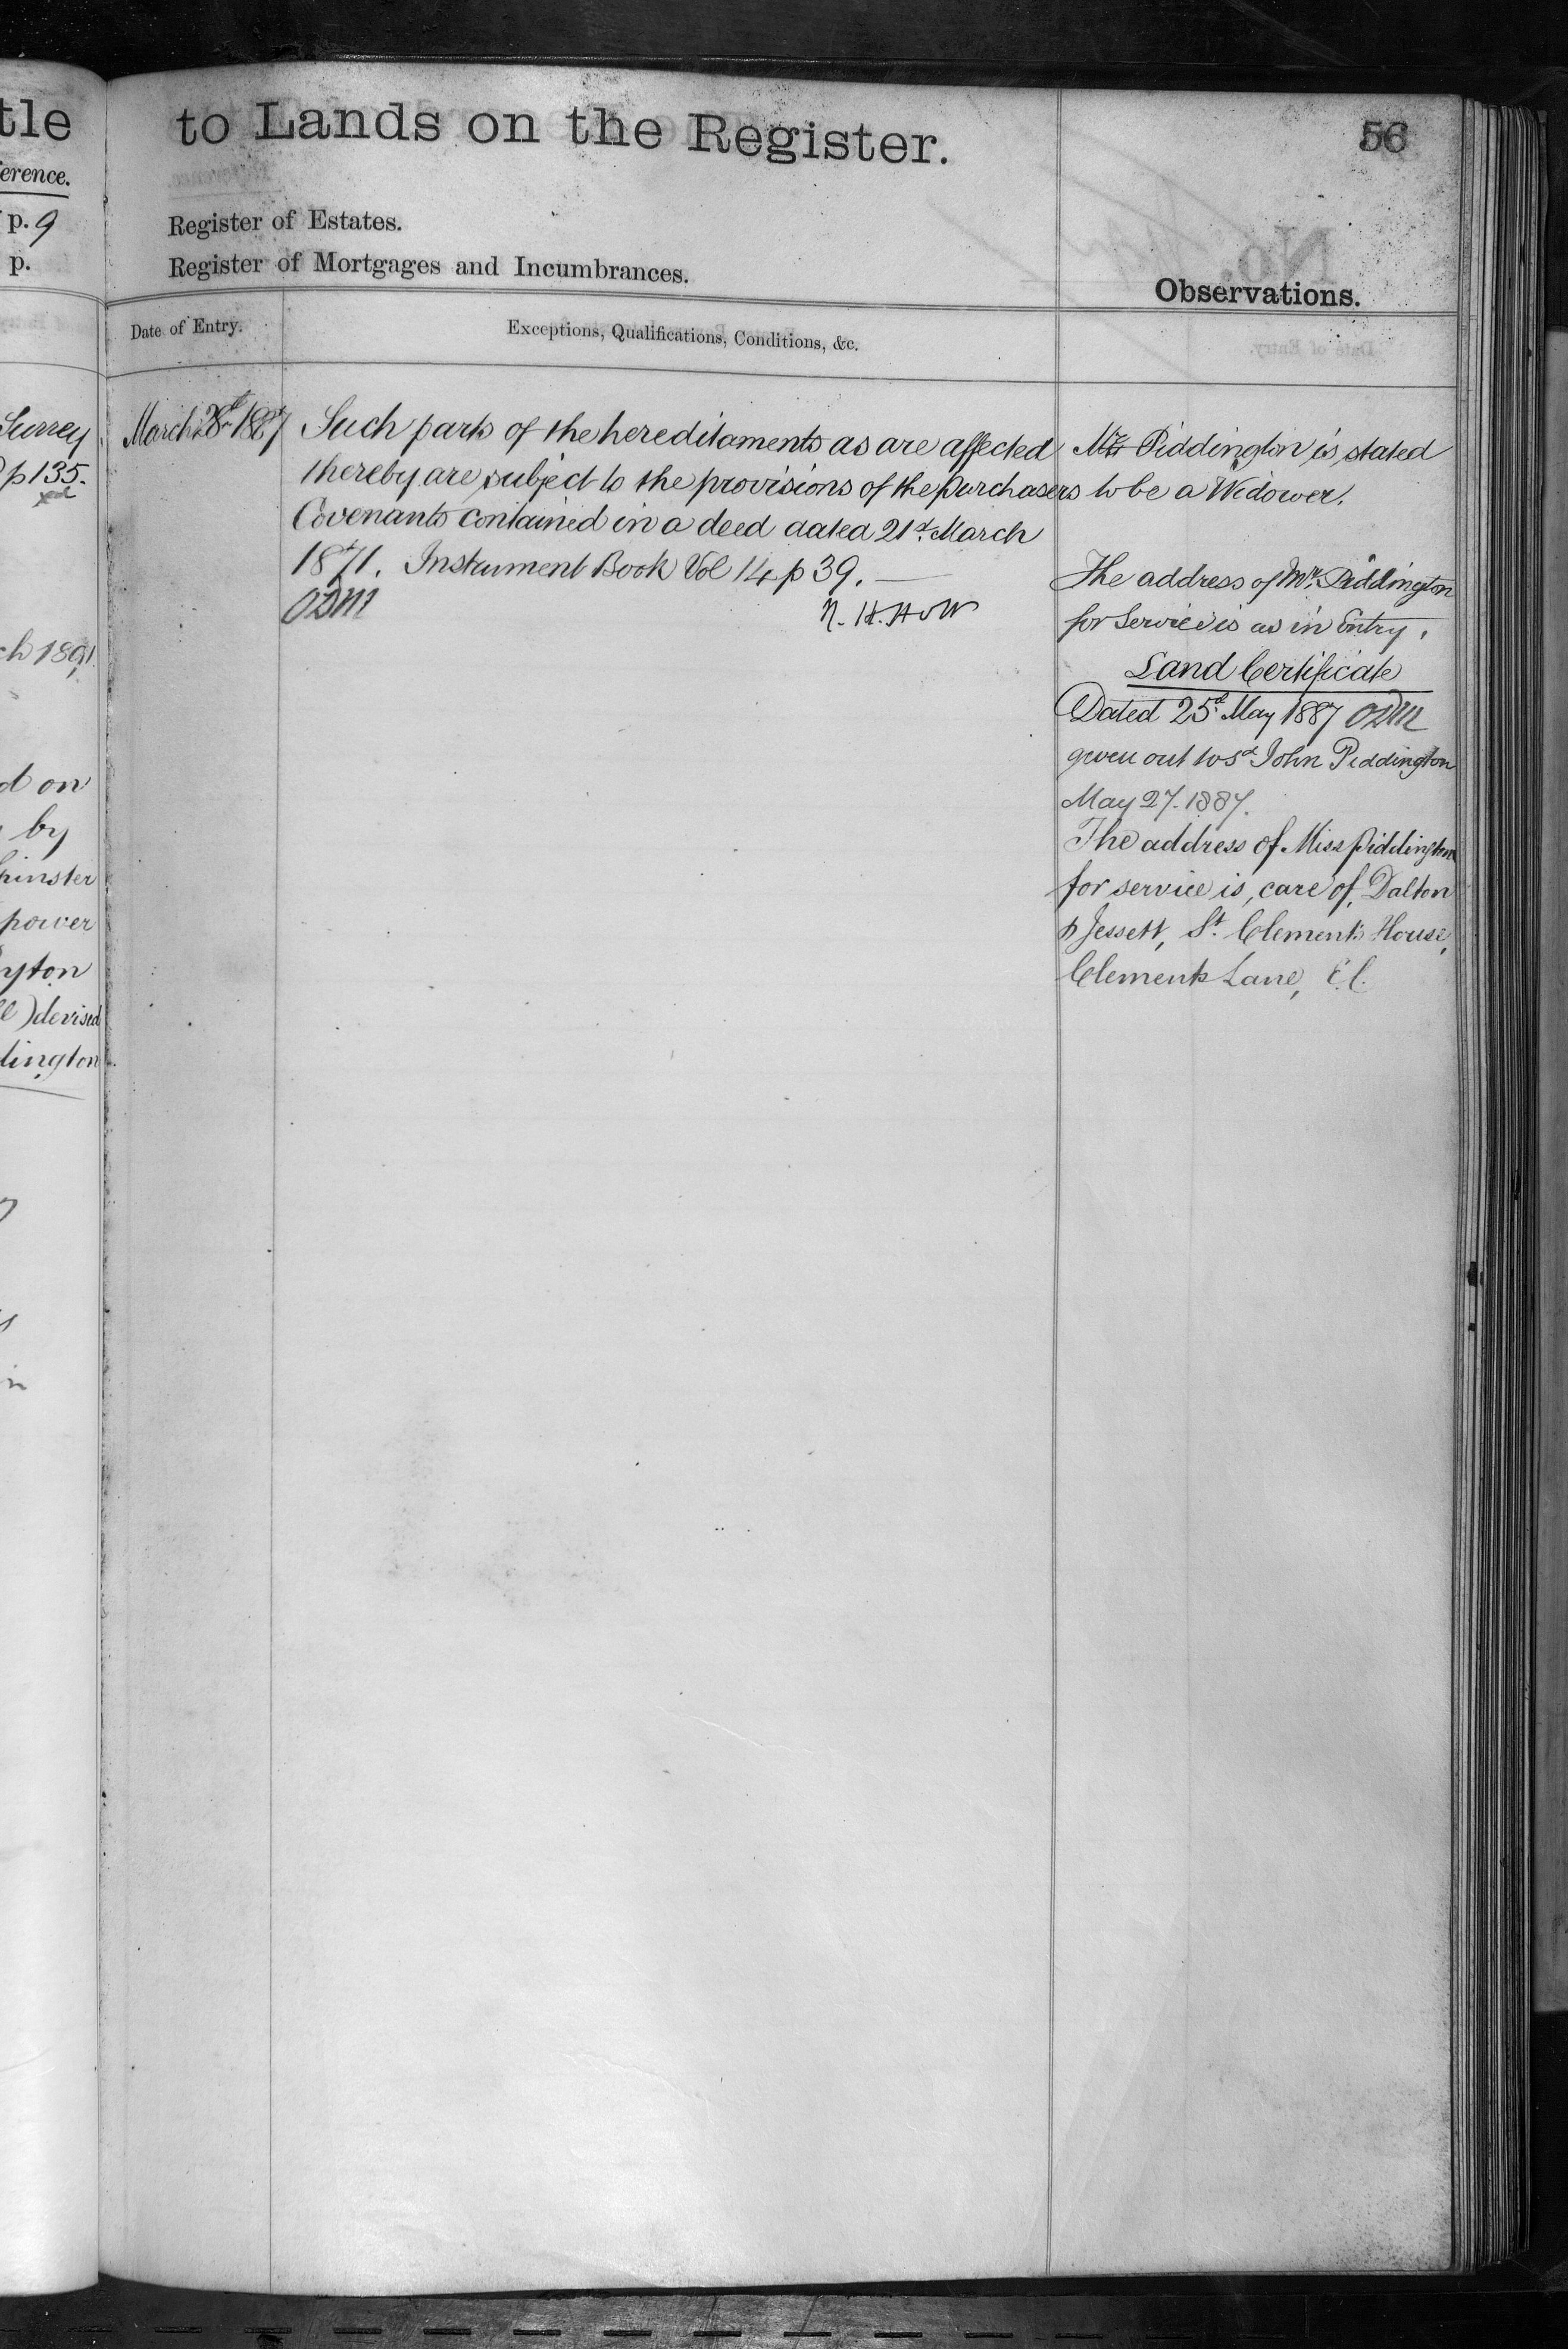 tle
erence.
p. 9
p.
Surrey
p 135.
ch 1891
d on
by
pinster
power
yton
devised
lington
to Lands on the Register.
56
Register of Estates.
Register of Mortgages and Incumbrances.
Observations.
Date of Entry.
Exceptions, Qualifications, Conditions, &c.
March 28th 1887
Such parts of the hereditaments as are affected
thereby are subject to the provisions of the purchasers
Covenants contained in a deed dated 21st March
1871. Instrument Book Vol 14 p 39.
ODM
N. H. HOW
Mr Piddington is stated
to be a Widower.
The address of Mr. Piddington
for Service is as in Entry.
Land Certificate
Dated 25th May 1887 ODM
given out to sd John Piddington
May 27. 1887.
The address of Miss Piddington
for service is, care of, Dalton
& Jessett, St. Clement's House,
Clements Lane, E.C.